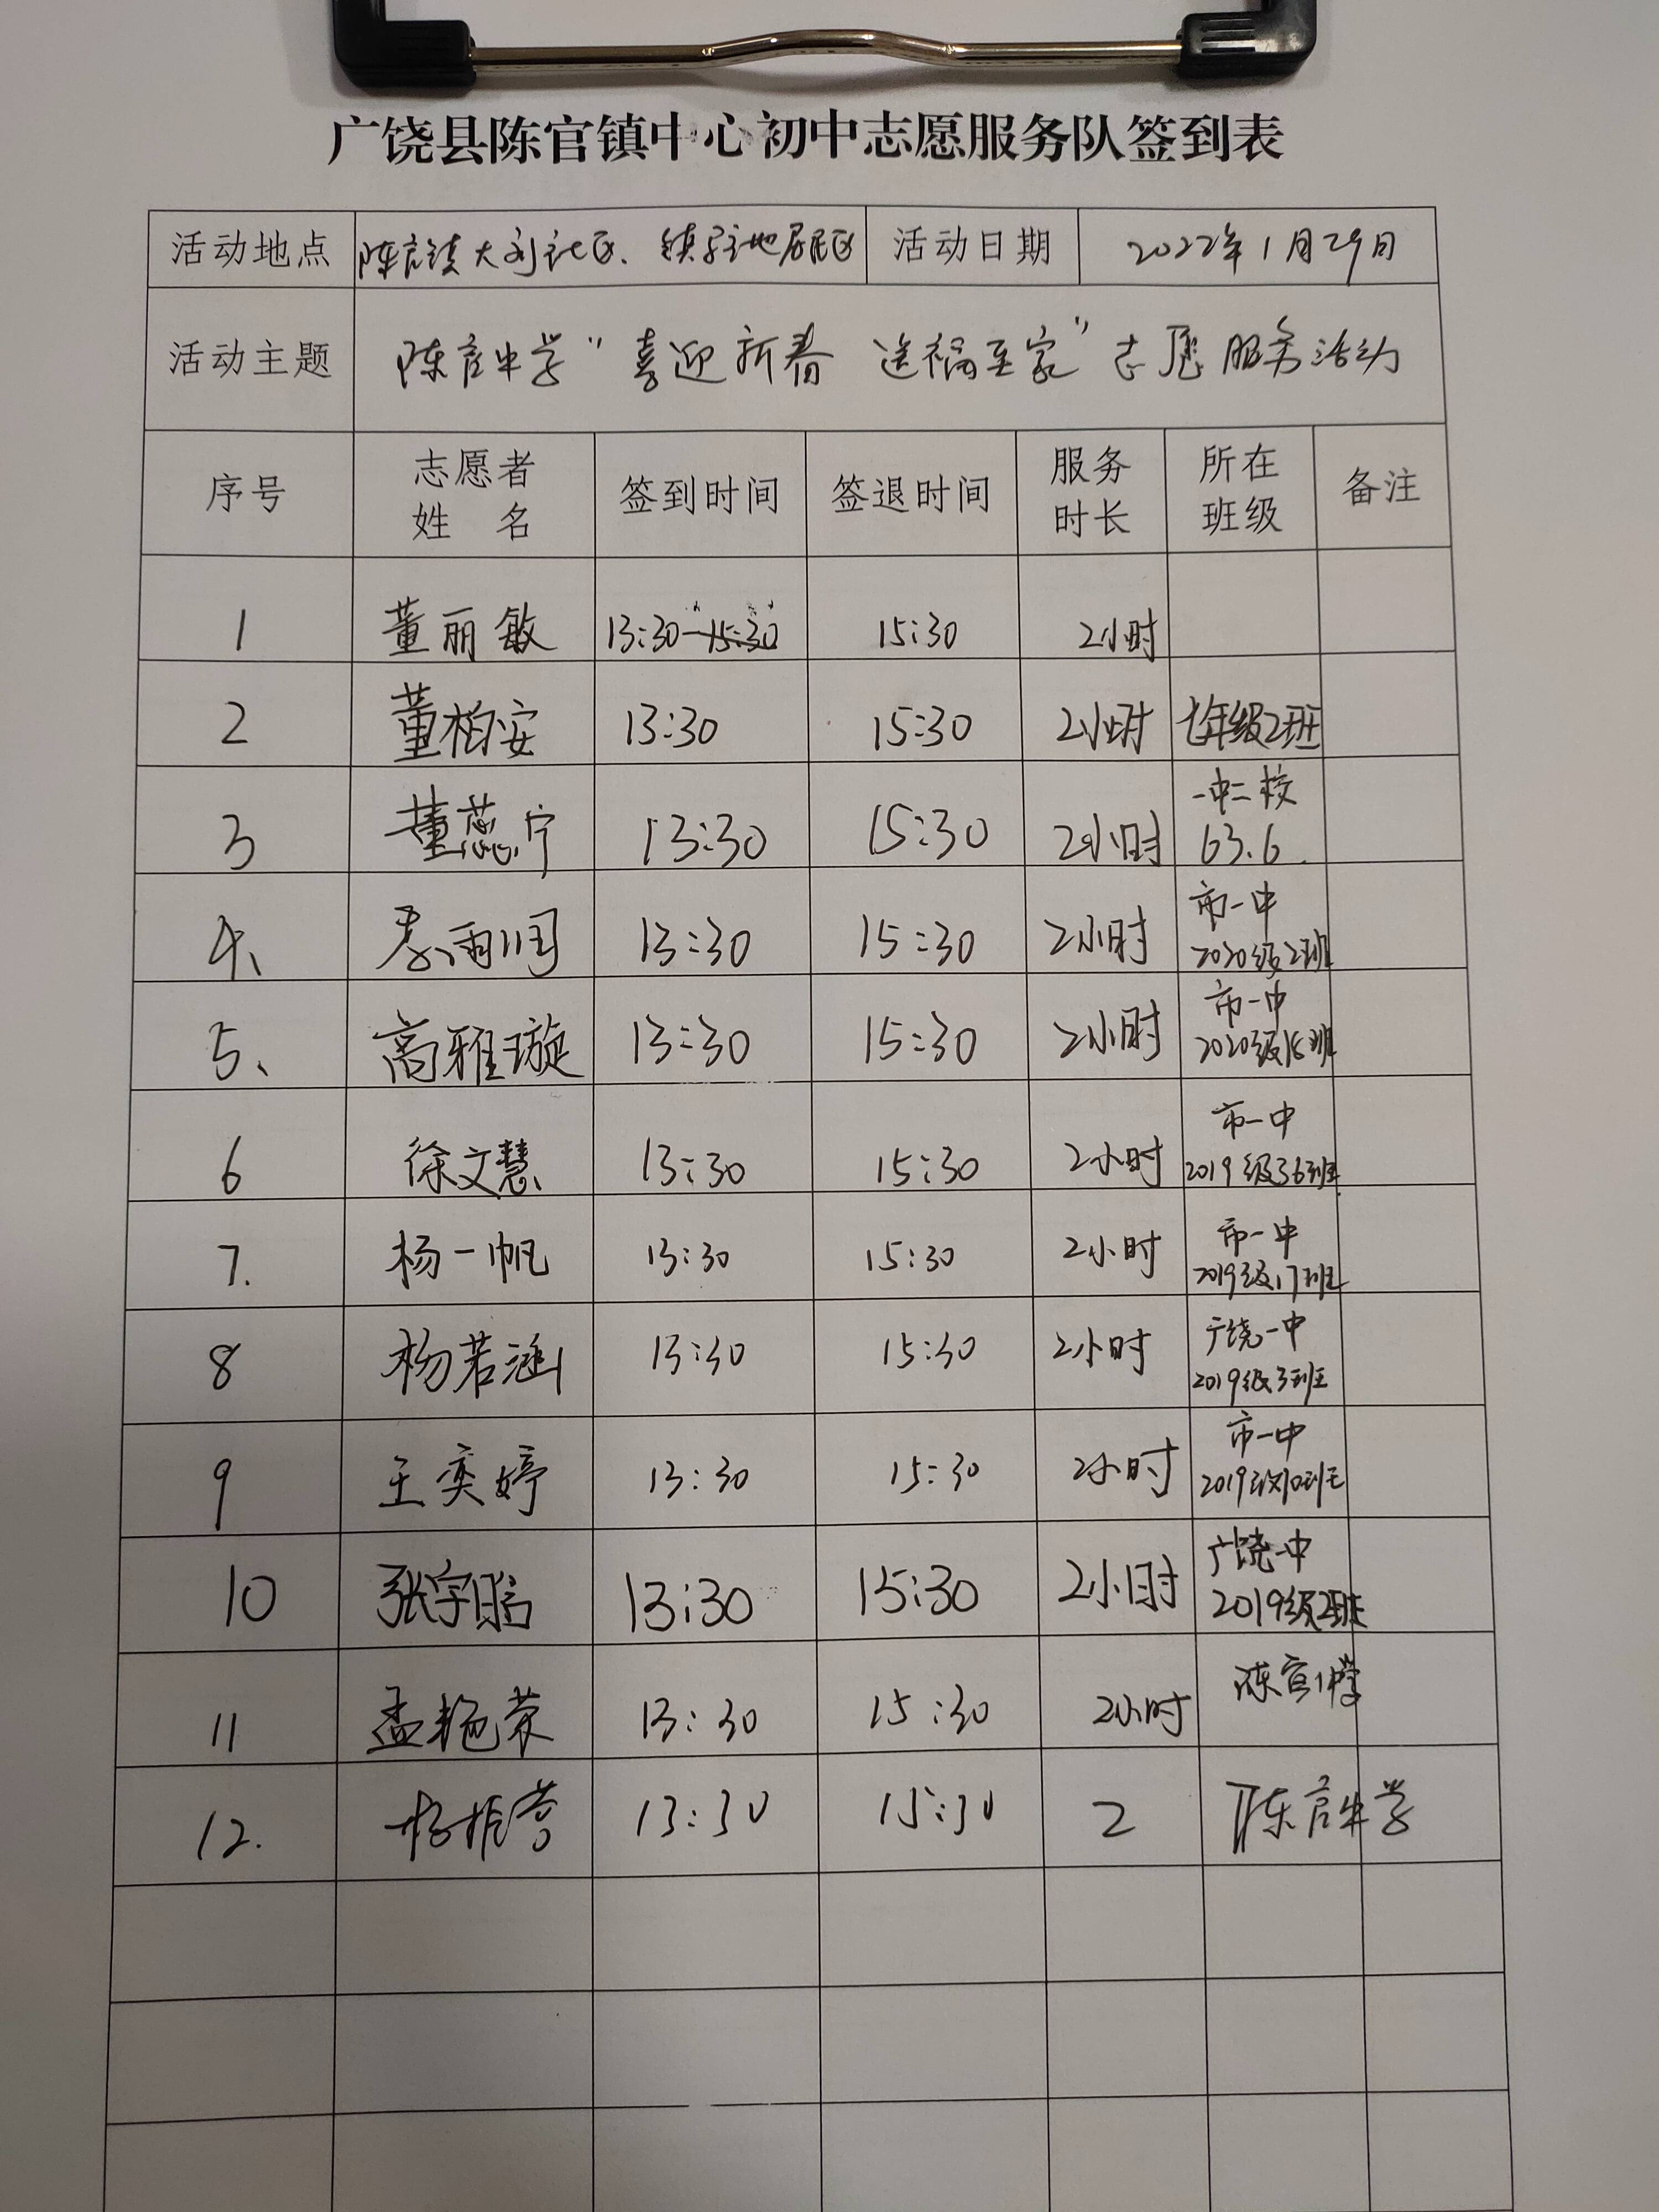 广饶县陈官镇中心初中志愿服务队签到表
活动地点 陈官镇大刘社区、镇驻地居民区 活动日期 2022年1月29日
活动主题 陈官中学“喜迎新春 送福至家”志愿服务活动
序号 志愿者姓 名 签到时间 签退时间 服务时长 所在班级 备注
1 董丽敏 13:30 15:30 2小时
2 董柏安 13:30 15:30 2小时 七年级2班
3 董蕊宁 13:30 15:30 2小时 一中二校 63.6
4、 雨润 13:30 15:30 2小时 市一中 2020级2班
5、 高雅璇 13:30 15:30 2小时 市一中 2020级18班
6 徐文慧 13:30 15:30 2小时 市一中 2019级36班
7. 杨一帆 13:30 15:30 2小时 市一中 2019级17班
8 杨若涵 13:30 15:30 2小时 广饶一中 2019级3班
9 王奕婷 13:30 15:30 2小时 市一中 2019级10班
10 张宇 13:30 15:30 2小时 广饶一中 2019级2班
11 孟艳荣 13:30 15:30 2小时 陈官中学
12. 杨振 13:30 15:30 2 陈官中学